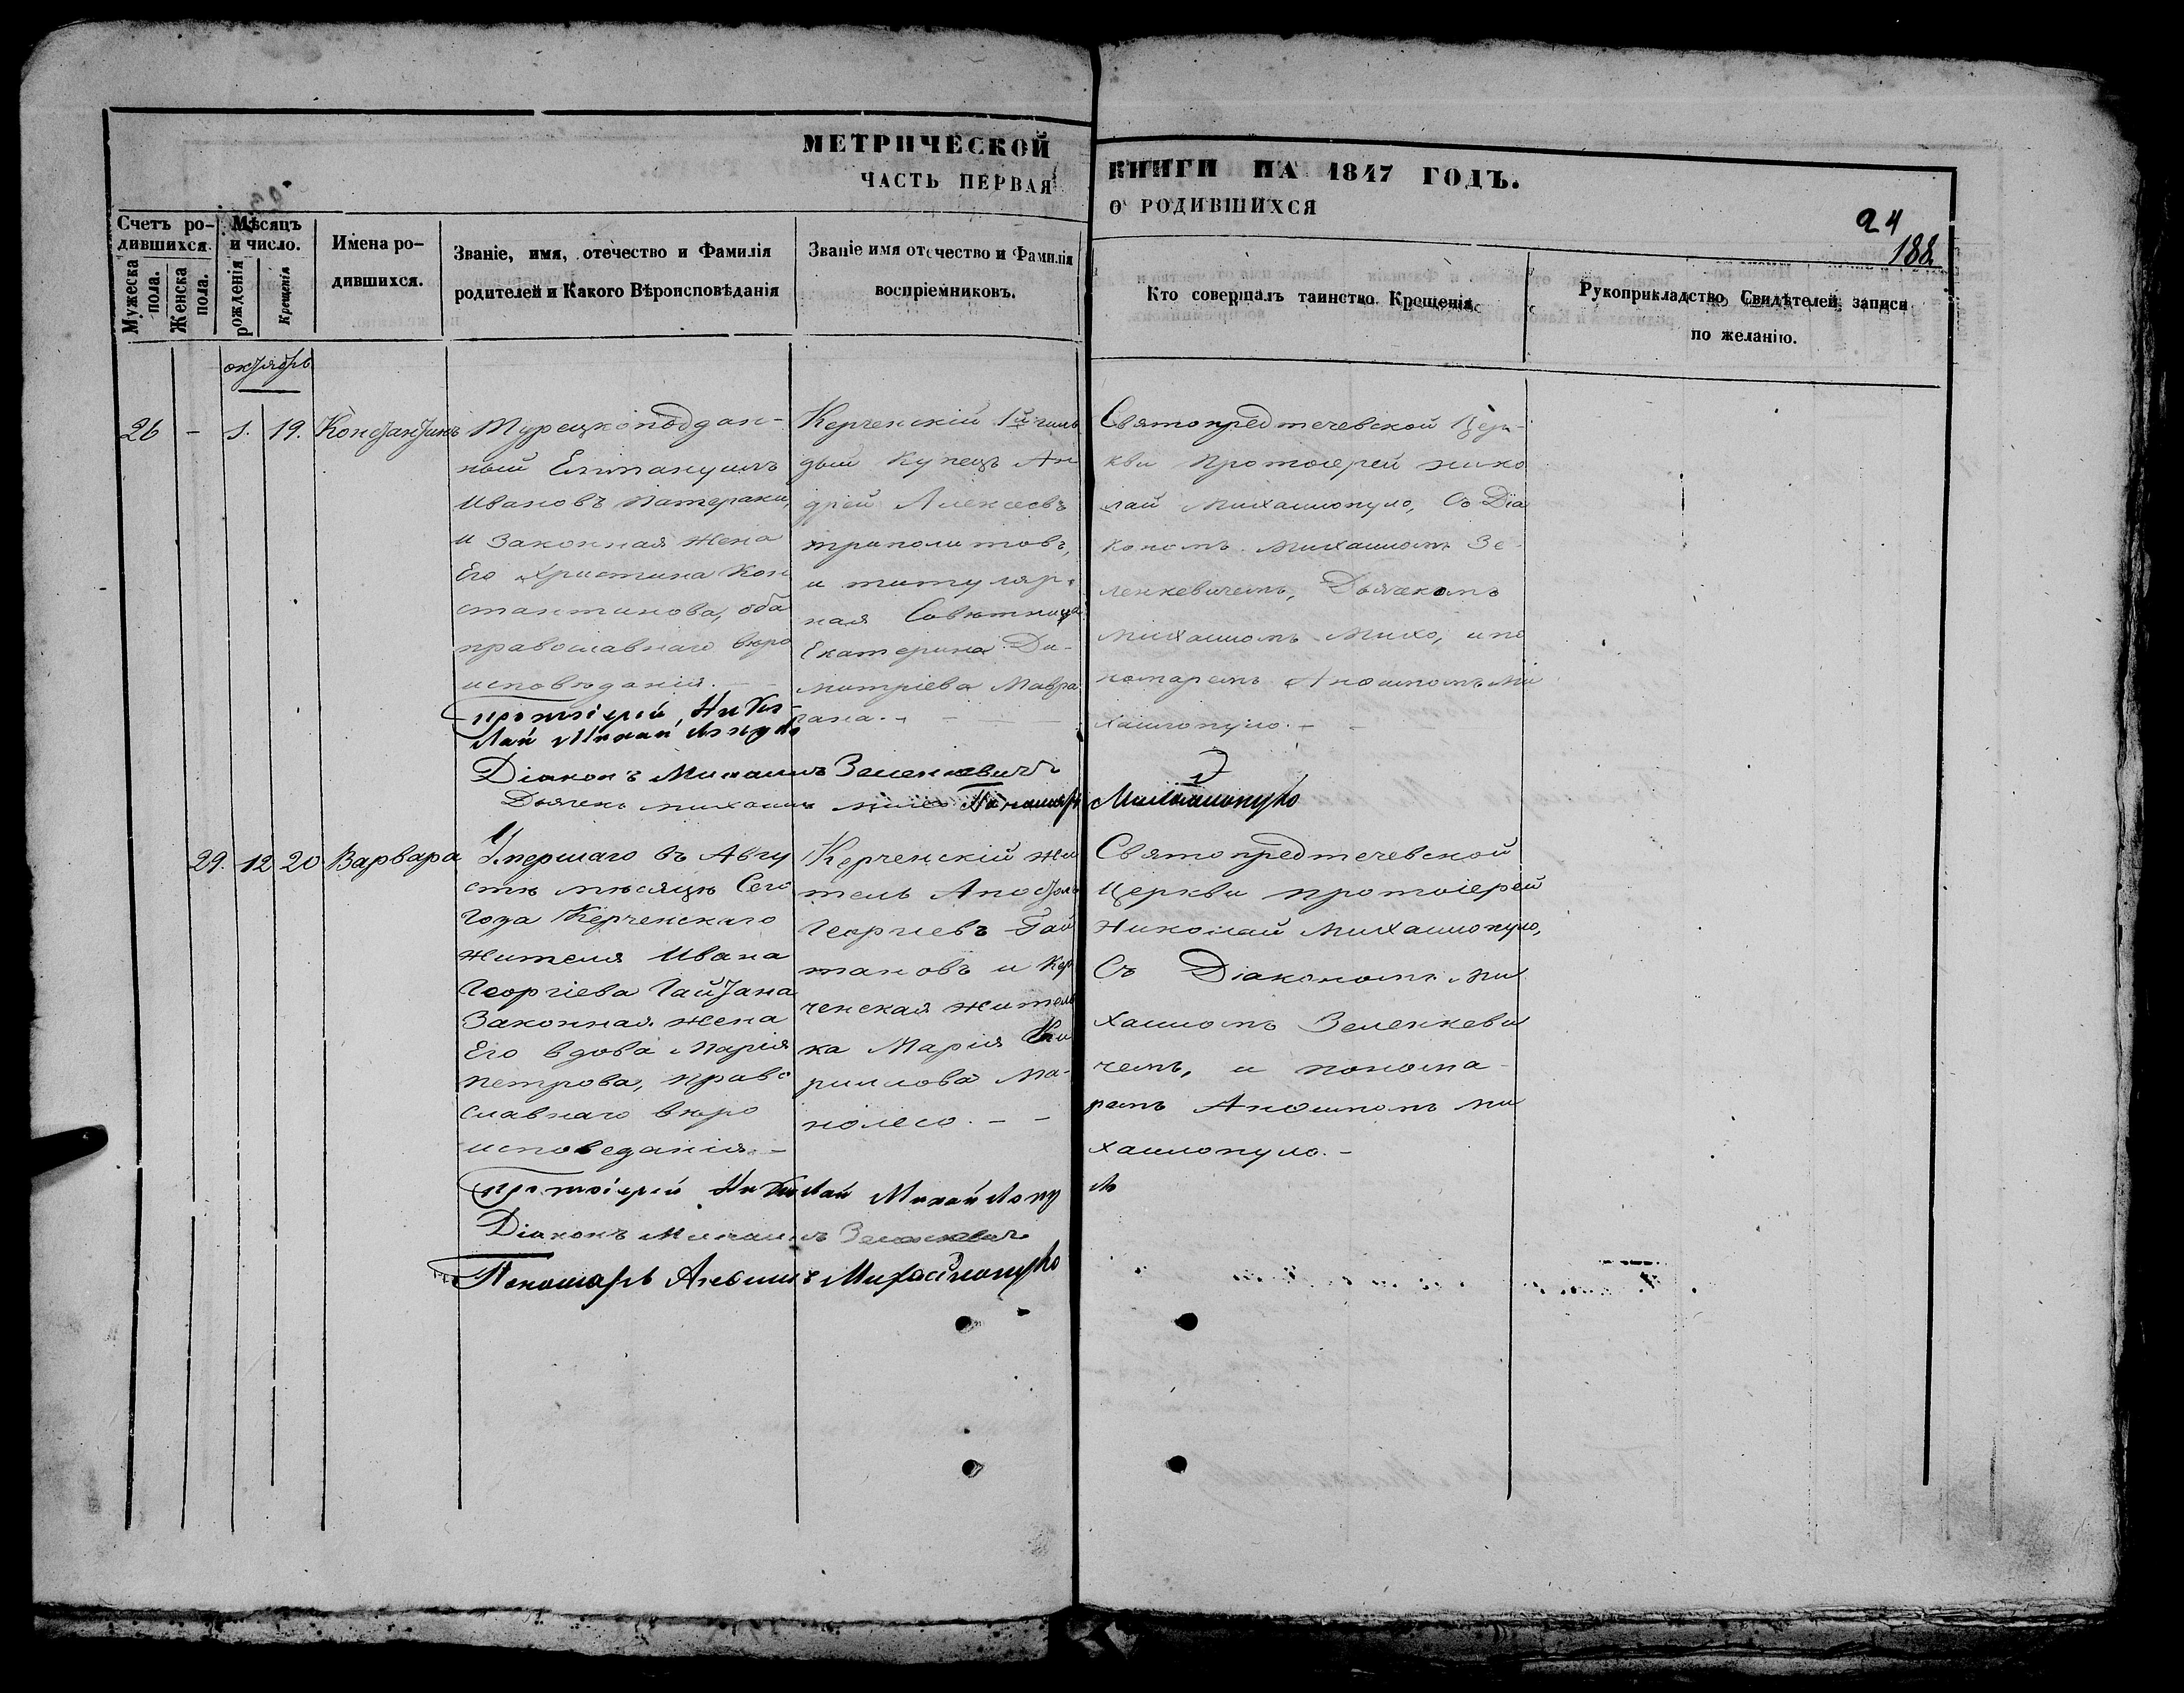 МЕТРИЧЕСКОЙ КНИГИ НА 1847 ГОДЪ.
ЧАСТЬ ПЕРВАЯ О РОДИВШИХСЯ
24
188
Счетъ ро-
дившихся.
Мужеска пола.
Женска пола.
Мѣсяцъ
и число.
рожденія
Крещенія
Имена ро-
дившихся.
Званіе, имя, отечество и Фамилія
родителей и Какого Вѣроисповѣданія
Званіе имя отечество и Фамилія
воспріемниковъ.
Кто совершалъ таинство Крещенія.
Рукоприкладство Свидѣтелей записи
по желанію.
октябрь
26 - 1. 19. Константинъ
Турецкоподдан-
ный Еммануилъ
Ивановъ Патераки,
и Законная жена
Его Христина Кон
стантинова, оба
православнаго вѣро
исповѣданія.
Керченскій 1й гиль
діи Купецъ Ан
дрей Алексеевъ
триполитовъ,
и титуляр-
ная Совѣтница
Екатерина Ди-
митріева Мавра
гана. -
Святопредтечевской Цер-
кви Протоіерей нико
лай Михаилопуло, Съ Діа
кономъ Михаиломъ Зе-
ленкевичемъ, Дьячкомъ
Михаиломъ Михо, и по
номаремъ Ми
хаилопуло. -
протоіерей Нико-
лай Михайлопуло
Діаконъ Михаилъ Зеленкевичъ
Дьячекъ Михаилъ Пономарь Михаилопуло
29. 12 20 Варвара
Умершаго въ Авгу
стѣ мѣсяцѣ Сего
Года Керченскаго
жителя Ивана
Георгіева Гайтана
Законная жена
Его вдова Марія
петрова, право
славнаго вѣро
исповеданія. -
Керченскій жи
тель Апостолъ
Георгіевъ Гай
тановъ и Кер
ченская житель
ка Марія Ки
риллова Ма-
нолесо. - -
Святопредтечевской
Церкви протоіерей
Николай Михаилопуло,
Съ Діакономъ Ми
хаиломъ Зеленкеви
чемъ, и понома-
ремъ Ми
хаилопуло. -
протоіерей Николай Михайлопу ло
Діаконъ Михаилъ Зеленкевичъ
Пономарь Михаилопуло